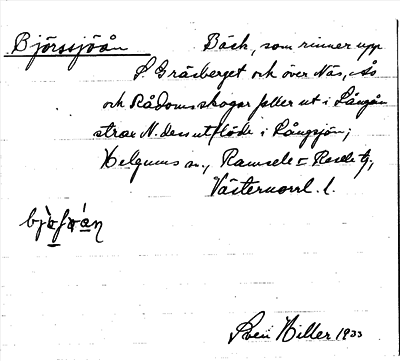 Björssjöån Bäck, som rinner upp
S. Gråsberget och över Näs, Ås
och Rådoms skogar faller ut i Långån
strax N. dess utflöde i Långsjön;
Helgums sn., Ramsele = Resele tg.,
Västernorrl. l.
Sven Hiller 1933